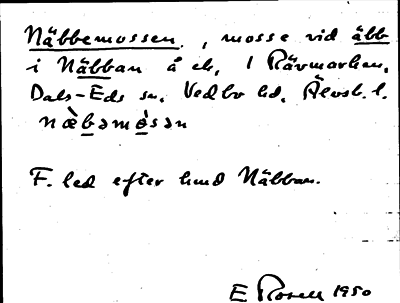 Näbbemossen, mosse vid äbb
i Näbban å ek, 1 Rävmarken,
Dals-Eds sn, Vedbo hd, Älvsb. l.
næ̀bəmòsən
F. led efter hmd Näbban.
E Rosell 1950